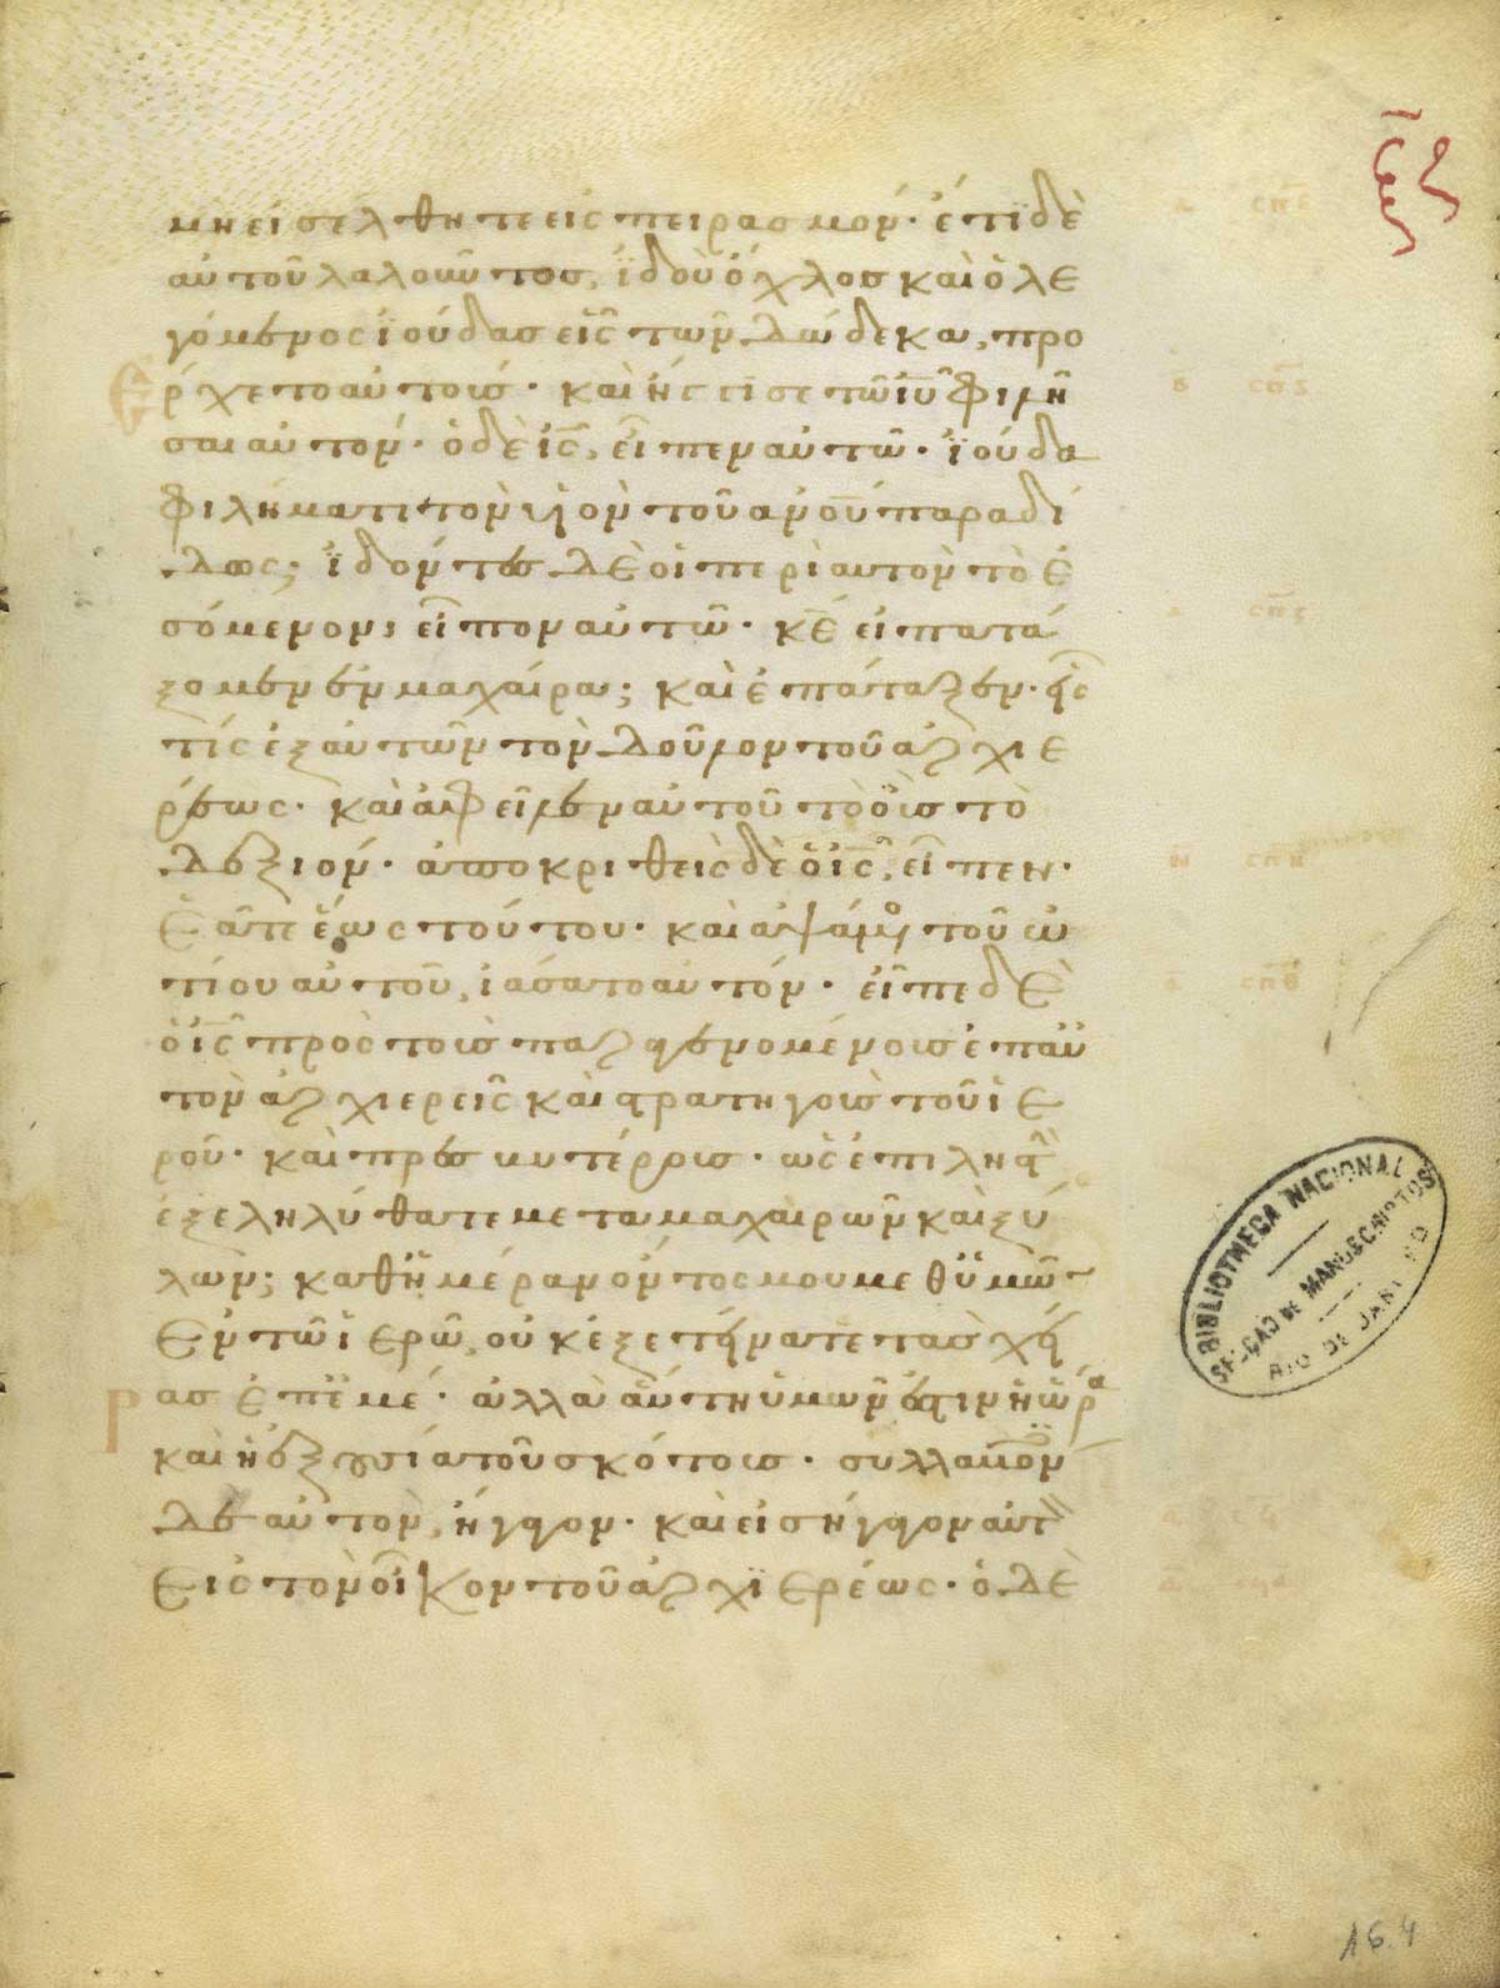 μὴ εἰσέλθητε εἰς πειρασμόν· ἔτι δὲ
αὐτοῦ λαλοῦντος, ἰδοὺ ὄχλος καὶ ὁ λε
γόμενος ἰούδας εἷς τῶν δώδεκα, προ
ήρχετο αὐτοῖς· καὶ ἤγγισε τῶ ιῡ φιλῆ
σαι αὐτόν· ὁ δὲ ις̄, εἶπεν αὐτῶ· ἰούδα
φιλήματι τὸν υἱὸν τοῦ ανο̄υ παραδί
δως; ἰδόντες δὲ οἱ περὶ αὐτὸν τὸ ἐ
σόμενον, εἶπον αὐτῶ· κε̄ εἰ πατά
ξομεν ἐν μαχαίρα; καὶ ἐπάταξεν εἷς
τίς ἐξ αὐτῶν τὸν δοῦλον τοῦ ἀρχιε
ρέως· καὶ ἀφεῖλεν αὐτοῦ τὸ οὖς τὸ
δεξιόν· ἀποκριθεὶς δὲ ὁ ις̄, εἶπεν·
ἐᾶτε ἕως τούτου· καὶ ἁψάμενος τοῦ ὠ
τίου αὐτοῦ, ἰάσατο αὐτόν· εἶπε δὲ
ὁ ις̄ πρὸς τοὺς παραγενομένους ἐπ' αὐ
τὸν ἀρχιερεῖς καὶ στρατηγοὺς τοῦ ἱε
ροῦ· καὶ πρεσβυτέρους· ὡς ἐπὶ ληστὴν
ἐξεληλύθατε μετὰ μαχαιρῶν καὶ ξύ
λων; καθ' ἡμέραν ὄντος μου μεθ' ὑμῶν
ἐν τῶ ἱερῶ, οὐκ ἐξετείνατε τὰς χεῖ
ρας ἐπ' ἐμέ· ἀλλ' αὕτη ὑμῶν ἐστιν ἡ ὥρα
καὶ ἡ ἐξουσία τοῦ σκότους· συλλαβόν
τες δὲ αὐτὸν, ἤγαγον· καὶ εἰσήγαγον αὐτ
εἰς τὸν οἶκον τοῦ ἀρχιερέως· ὁ δὲ
BIBLIOTHECA NACIONAL
SECÇÃO DE MANUSCRIPTOS
RIO DE JANEIRO
164